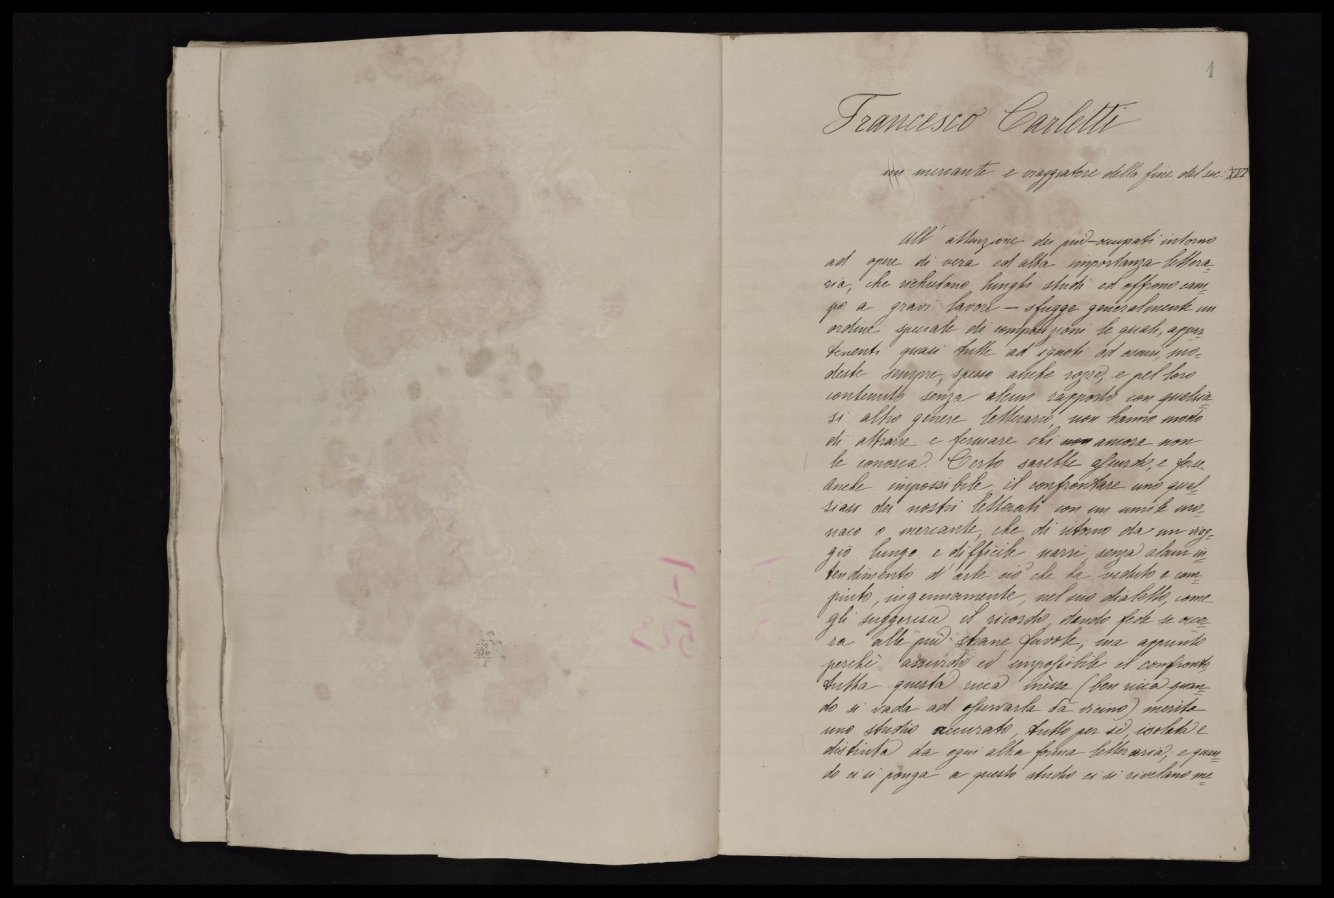 1
Francesco Carletti
un mercante e viaggiatore della fine del sec. XVI
All' attenzione dei più occupati intorno
ad opere di vera ed alta importanza lettera=
ria, che richiedono lunghi studi ed offrono cam=
po a gravi lavori — sfugge generalmente un
ordine speciale di composizioni le quali, appar=
tenenti quasi tutte ad ignoti od oscuri, mo=
deste sempre, spesso anche rozze, e pel loro
contenuto senza alcun rapporto con qualsia=
si altro genere letterario, non hanno modo
di attrarre e fermare chi ancora non
le conosca. Certo sarebbe assurdo, e forse
anche impossibile il confrontare uno qual=
siasi dei nostri letterati con un umile mo=
naco o mercante, che di ritorno da un viag=
gio lungo e difficile narri, senza alcun in=
tendimento d' arte ciò che ha veduto e com=
piuto, ingenuamente, nel suo dialetto, come
gli suggerisce il ricordo, dando fede sicu=
ra alle più strane favole; ma appunto
perchè assurdo ed impossibile il confronto,
tutta questa ricca mèsse (ben ricca quan=
do si vada ad osservarla da vicino) merita
uno studio accurato, tutto per sè, isolata e
distinta da ogni altra forma letteraria, e quan=
do ci si ponga a questo studio ci si rivelano me=
1-15